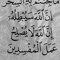 مَا جِئْتُم بِهِ السِّحْرُ
إِنَّ اللَّهَ سَيُبْطِلُهُ
إِنَّ اللَّهَ لَا يُصْلِحُ
عَمَلَ الْمُفْسِدِينَ